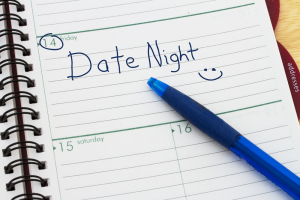 14 Friday
Date Night
15 saturday
16
addresses